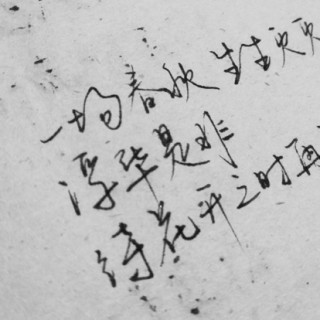 一均春秋 生生灭灭
浮华是非
待花开之时再